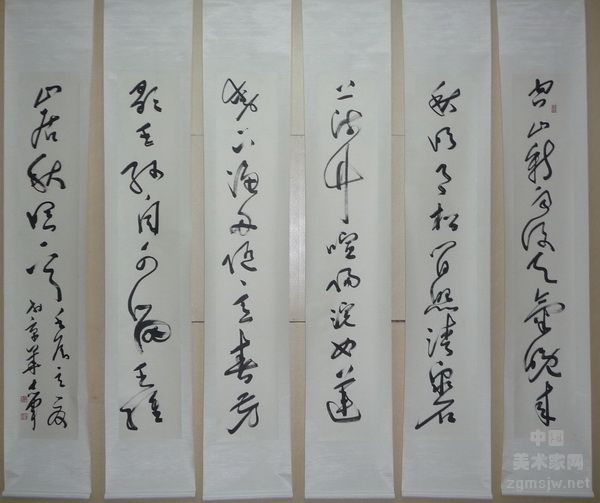 空山新雨後天氣晚来
秋明月松間照清泉石
上流竹喧歸浣女蓮
動下漁舟随意春芳
歇王孫自可留王維
山居秋暝一首
之夏
京華
中国
美术家网
zgmsjw.net